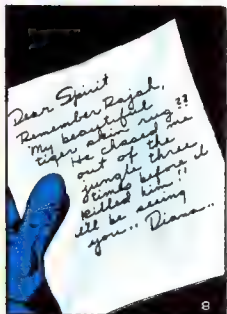 Dear Spirit
Remember Rajah,
My beautiful
tiger skin rug??
He chased me
out of the
jungle three
times before I
killed him!!
I'll be seeing
you.. Diana..
8